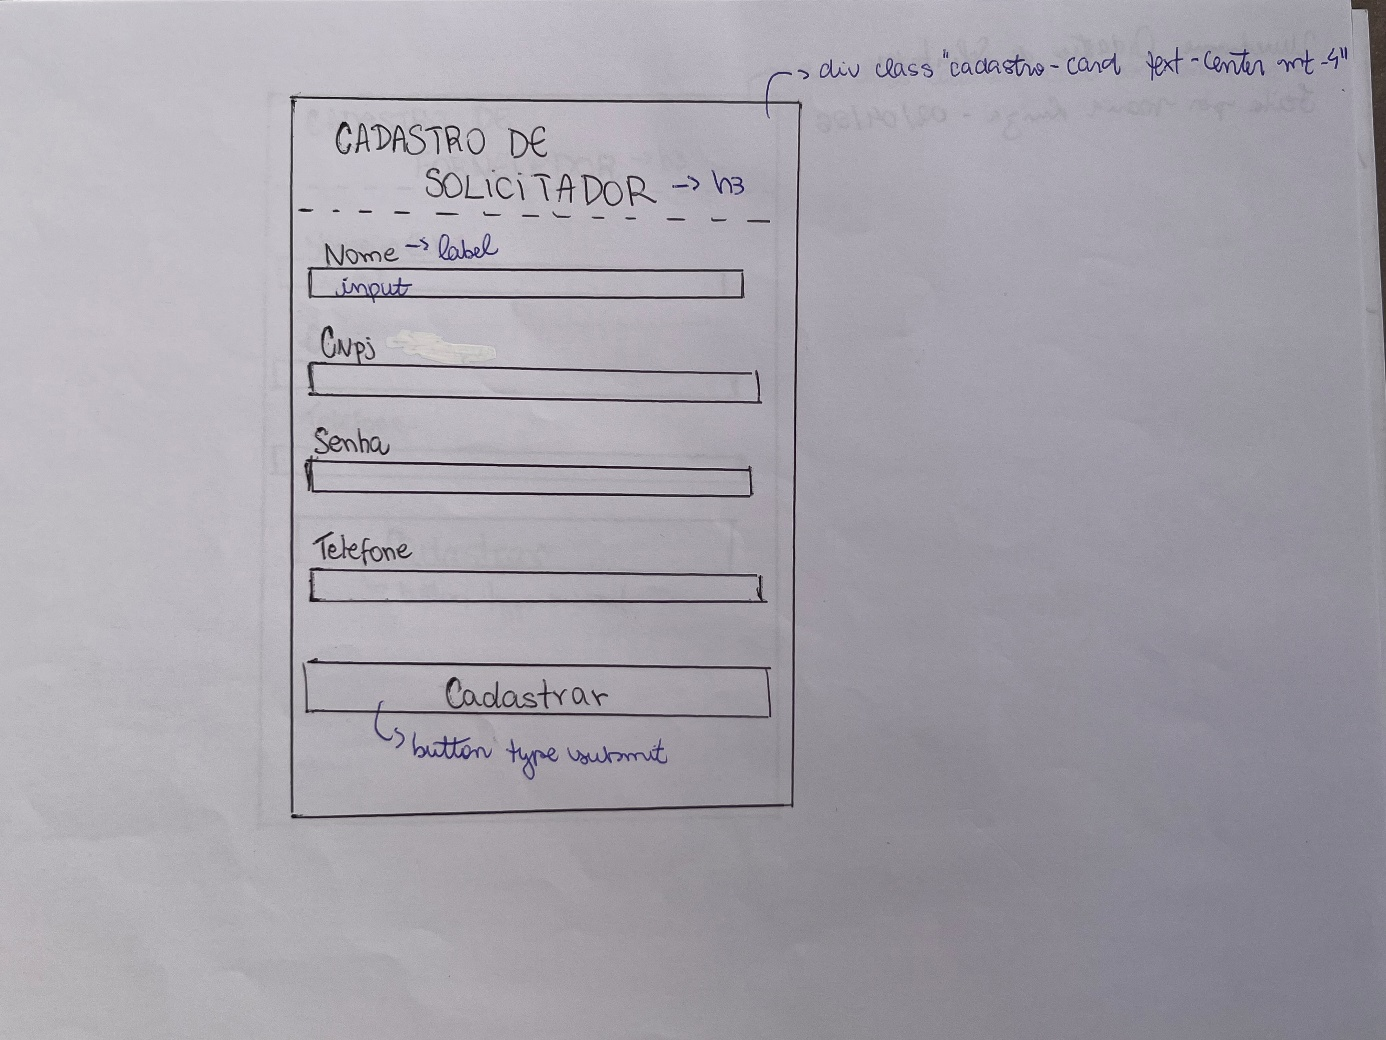 div class "cadastro-card text-center mt-5"
CADASTRO DE
SOLICITADOR -> h3
Nome -> label
input
Cnpj
Senha
Telefone
Cadastrar
button type submit